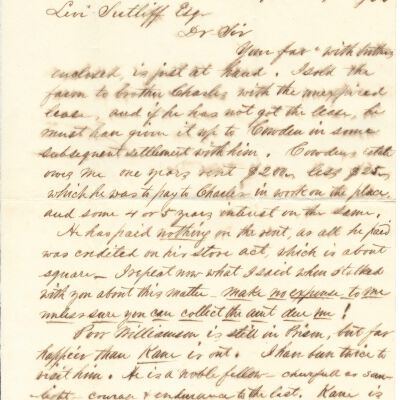 Levi Sutliff Esqr
Dr Sir
Your favr with brothers
enclosed, is just at hand. I sold the
farm to brother Charles with the unexpired
lease, and if he has not got the lease, he
must han given it up to Cowden in some
subsequent settlement with him. Cowdens estate
owes me one years rent $200, less $25,
which he was to pay to Charles in work on the place,
and some 4 or 5 years interest on the same.
He has paid nothing on the rent, as all he paid
was credited on his store act, which is about
square — I repeat now what I said when I talked
with you about this matter — make no expense to me
unless sure you can collect the amt due me!
Poor Williamson is still in Prison, but far
happier than Kane is out. I han been twice to
visit him. He is a noble fellow — cheerful as sun
light — courage & endurance to the last. Kane is